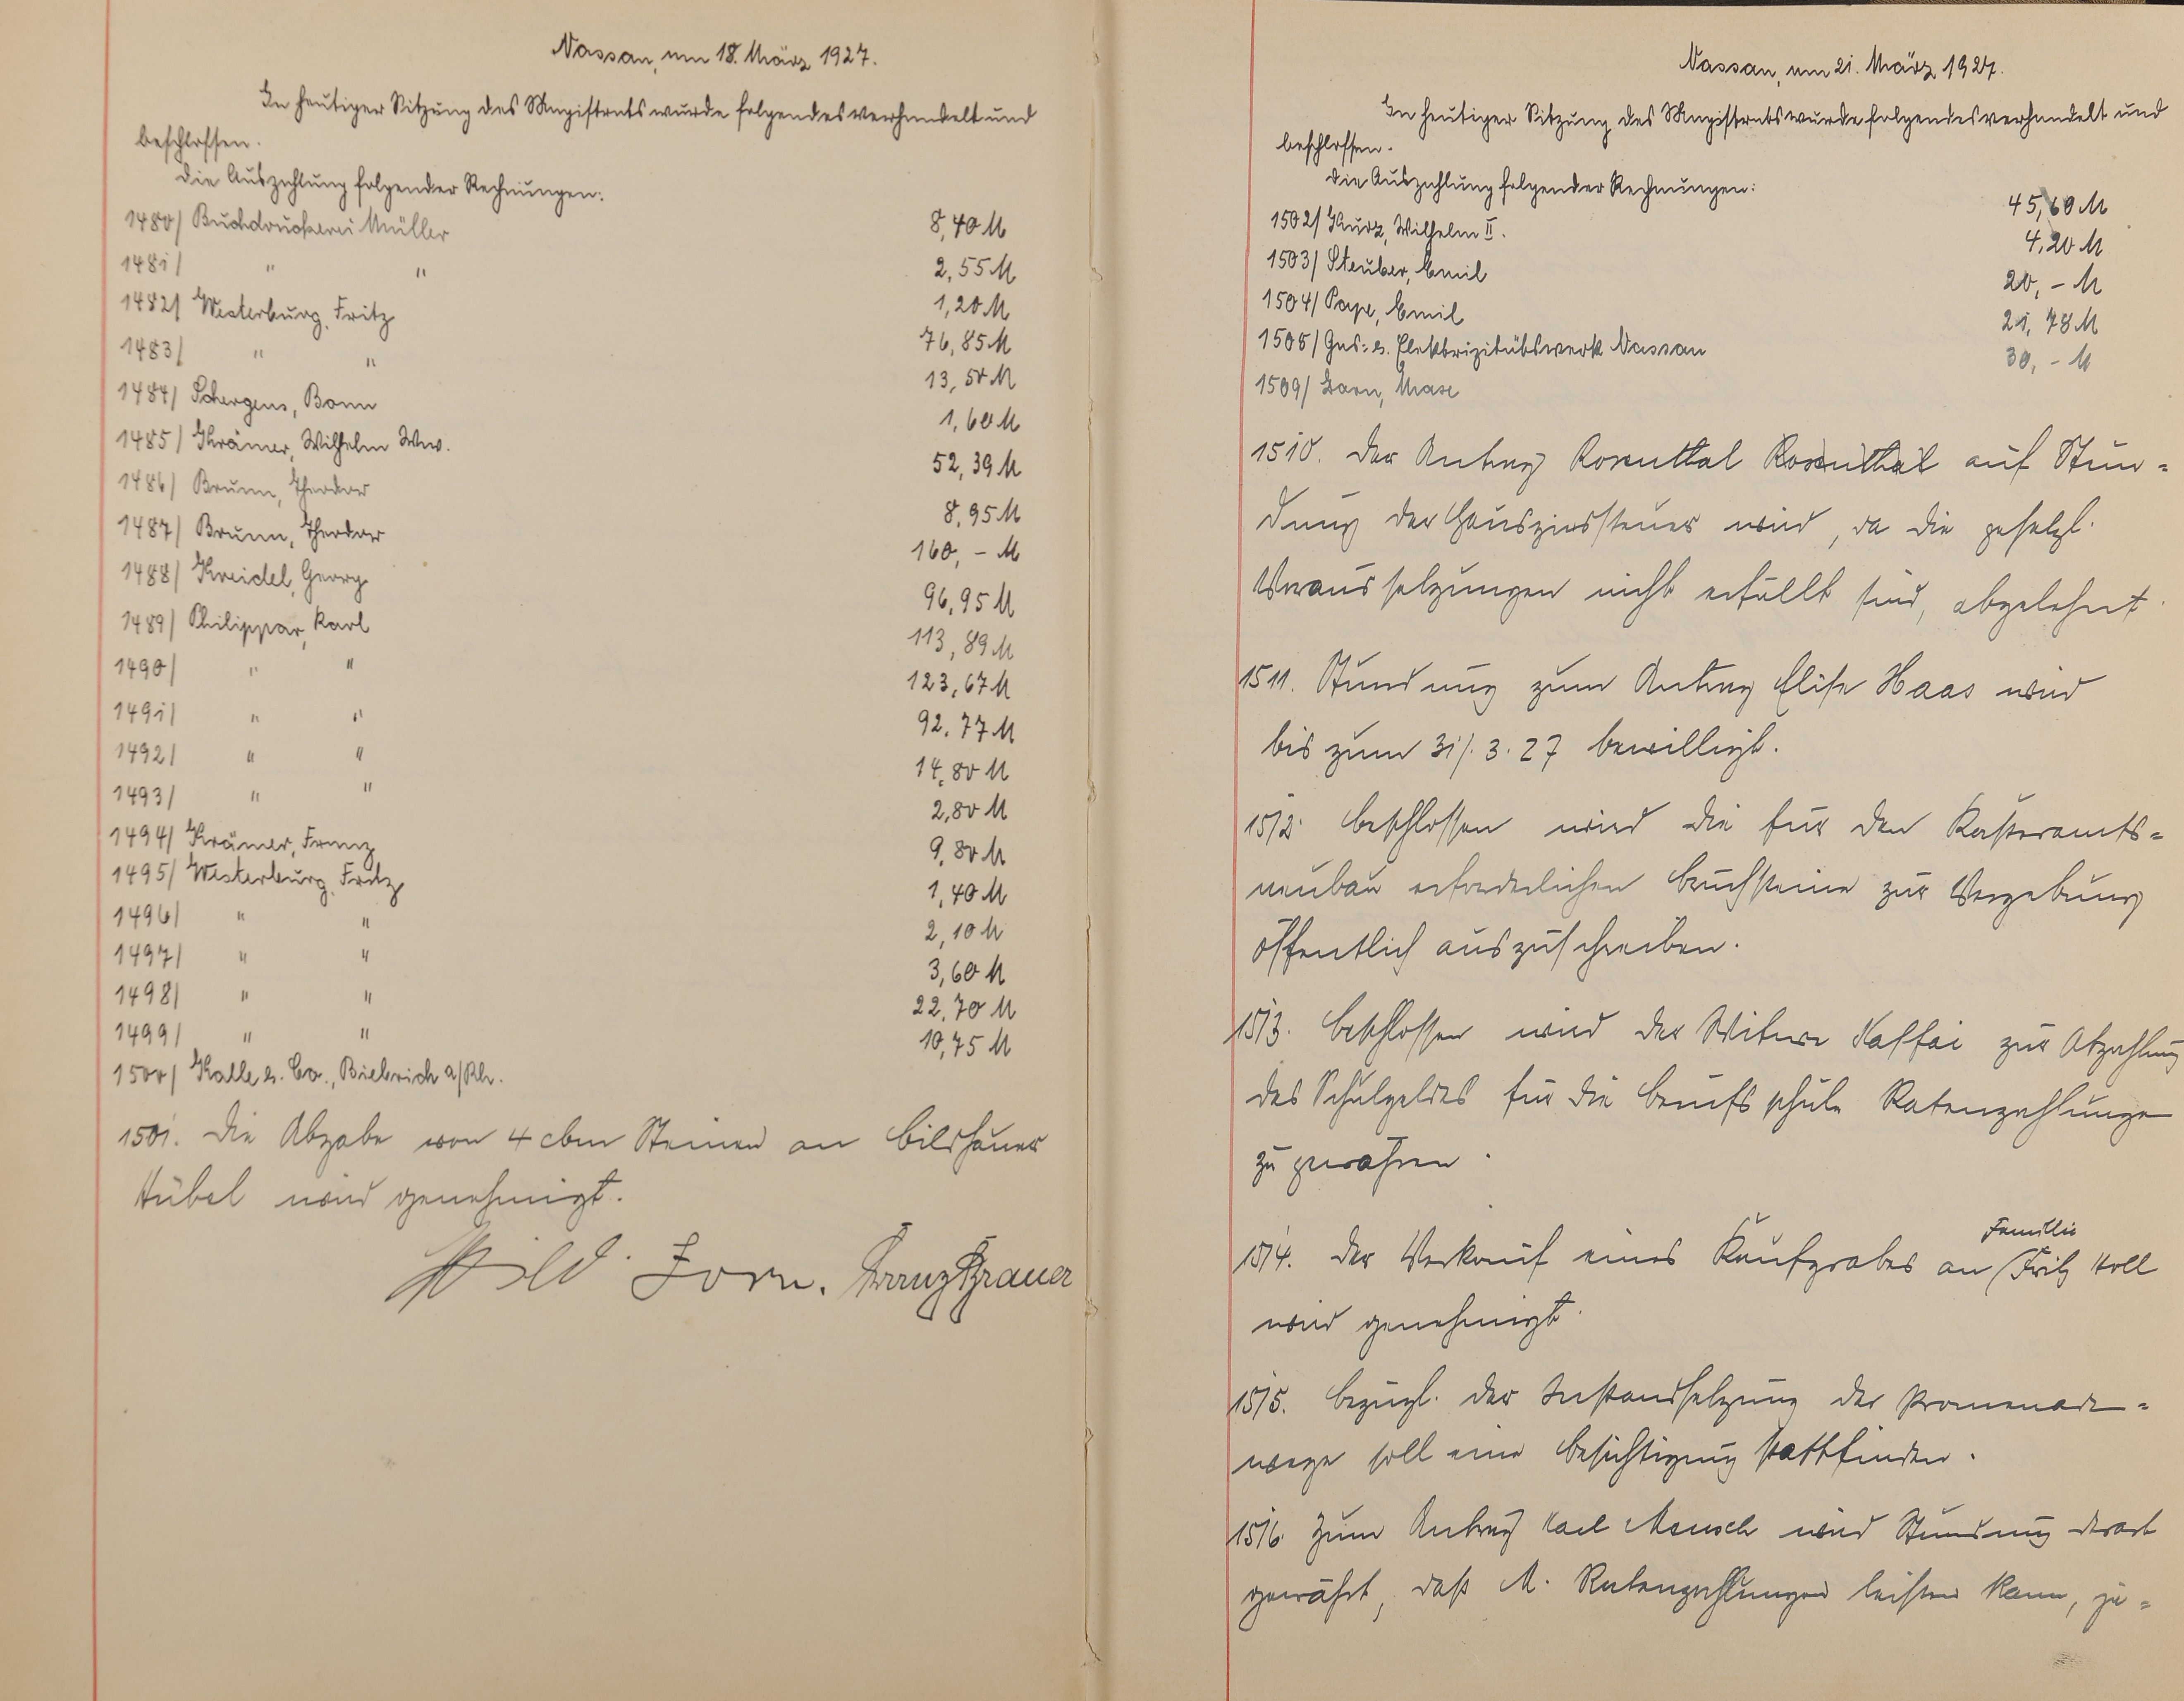 Nassau, am 18. März 1927.
In heutiger Sitzung des Magistrats wurde folgendes verhandelt und
beschlossen.
Die Auszahlung folgender Rechnungen:
1480/ Buchdruckerei Müller 8,40 M
1481/ " " 2,55 M
1482/ Westerburg, Fritz 1,20 M
1483/ " " 76,85 M
1484/ Schergens, Bonn 13,50 M
1485/ Krämer, Wilhelm Ww. 1,60 M
1486/ Brunn, Theodor 52,39 M
1487/ Brunn, Theodor 8,95 M
1488/ Kreidel, Georg 160,– M
1489/ Philippar, Karl 96,95 M
1490/ " " 113,89 M
1491/ " " 123,67 M
1492/ " " 92,77 M
1493/ " " 14,80 M
1494/ Krämer, Franz 2,80 M
1495/ Westerburg, Fritz 9,80 M
1496/ " " 1,40 M
1497/ " " 2,10 M
1498/ " " 3,60 M
1499/ " " 22,70 M
1500/ Kalle u. Co., Biebrich a/Rh. 10,75 M
1501. Die Abgabe von 4 cbm Steinen an Bildhauer
Hübel wird genehmigt.
Zorn. Franz Brauer
Nassau, am 21. März 1927.
In heutiger Sitzung des Magistrats wurde folgendes verhandelt und
beschlossen.
Die Auszahlung folgender Rechnungen:
1502/ Kurz, Wilhelm II. 45,60 M
1503/ Steuber, Emil 4,20 M
1504/ Pape, Emil 20,– M
1505/ Gas- u. Elektrizitätswerk Nassau 21,78 M
1509/ Zorn, Maxe 30,– M
1510. Der Antrag Rosenthal Rosenthal auf Stun-
dung der Hauszinssteuer wird, da die gesetzl.
Voraussetzungen nicht erfüllt sind, abgelehnt.
1511. Stundung zum Antrag Elise Haas wird
bis zum 31/. 3. 27 bewilligt.
1512. Beschlossen wird die für den Katasteramts-
neubau erforderlichen Bruchsteine zur Vergebung
öffentlich auszuschreiben.
1513. Beschlossen wird der Witwe Kaffai zur Abzahlung
des Schulgeldes für die Berufsschule Ratenzahlungen
zu gewähren.
1514. Der Verkauf eines Kaufgrabes an (Familie Fritz Holl
wird genehmigt.
1515. Bezügl. der Instandsetzung der Promenade-
wege soll eine Besichtigung stattfinden.
1516. Zum Antrag Karl Mensch wird Stundung derart
gewährt, daß M. Ratenzahlungen leisten kann, je-